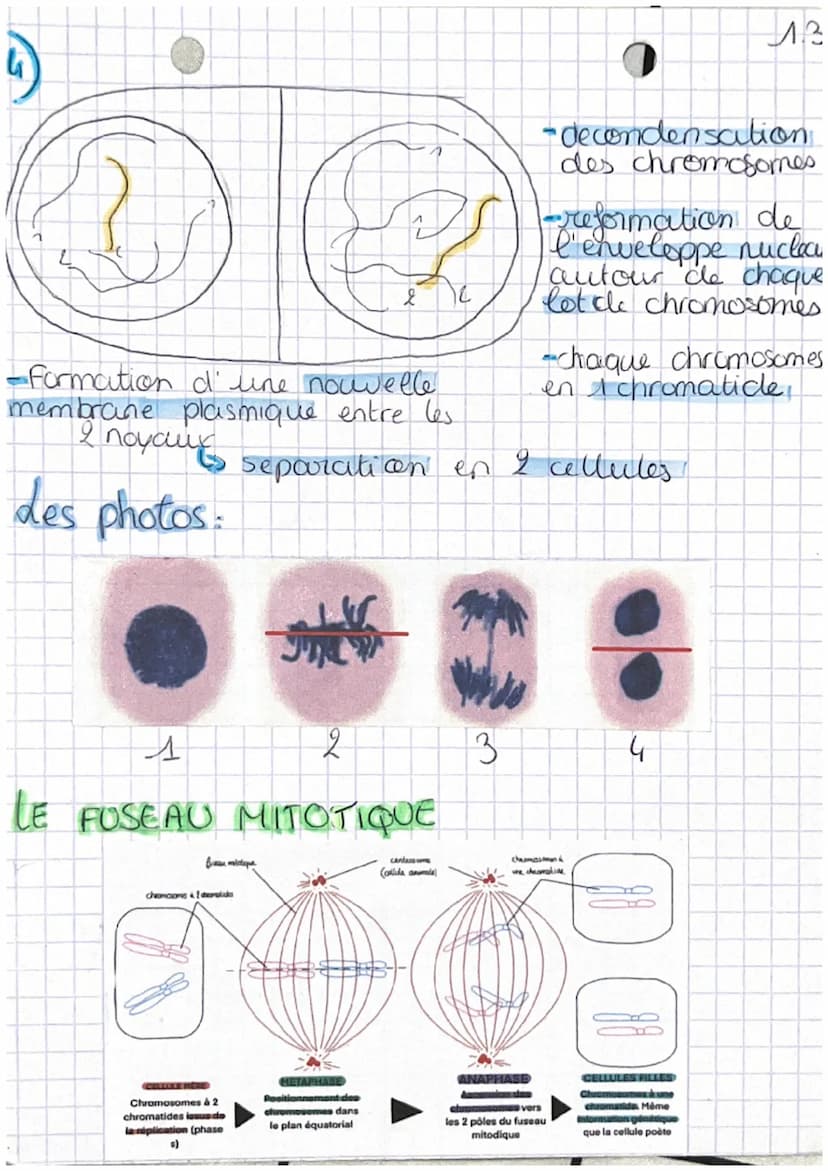 1.3
4
- decondensation
des chromosomes
- reformation de
l'enveloppe nuclea
autour de chaque
lot de chromosomes
- chaque chromosomes
en 1 chromatide
- Formation d'une nouvelle
membrane plasmique entre les
2 noyaux
↳ separation en 2 cellules
des photos:
1 2 3 4
LE FUSEAU MITOTIQUE
fuseau mitotique
centrosome
(cellule animale)
chromosomes à
une chromatide
chromosome à 2 chromatides
CELLULE MÈRE
Chromosomes à 2
chromatides issus de
la réplication (phase
s)
MÉTAPHASE
Positionnement des
chromosomes dans
le plan équatorial
ANAPHASE
Ascension des
chromosomes vers
les 2 pôles du fuseau
mitodique
CELLULES FILLES
Chromosomes à une
chromatide. Même
information génétique
que la cellule poète